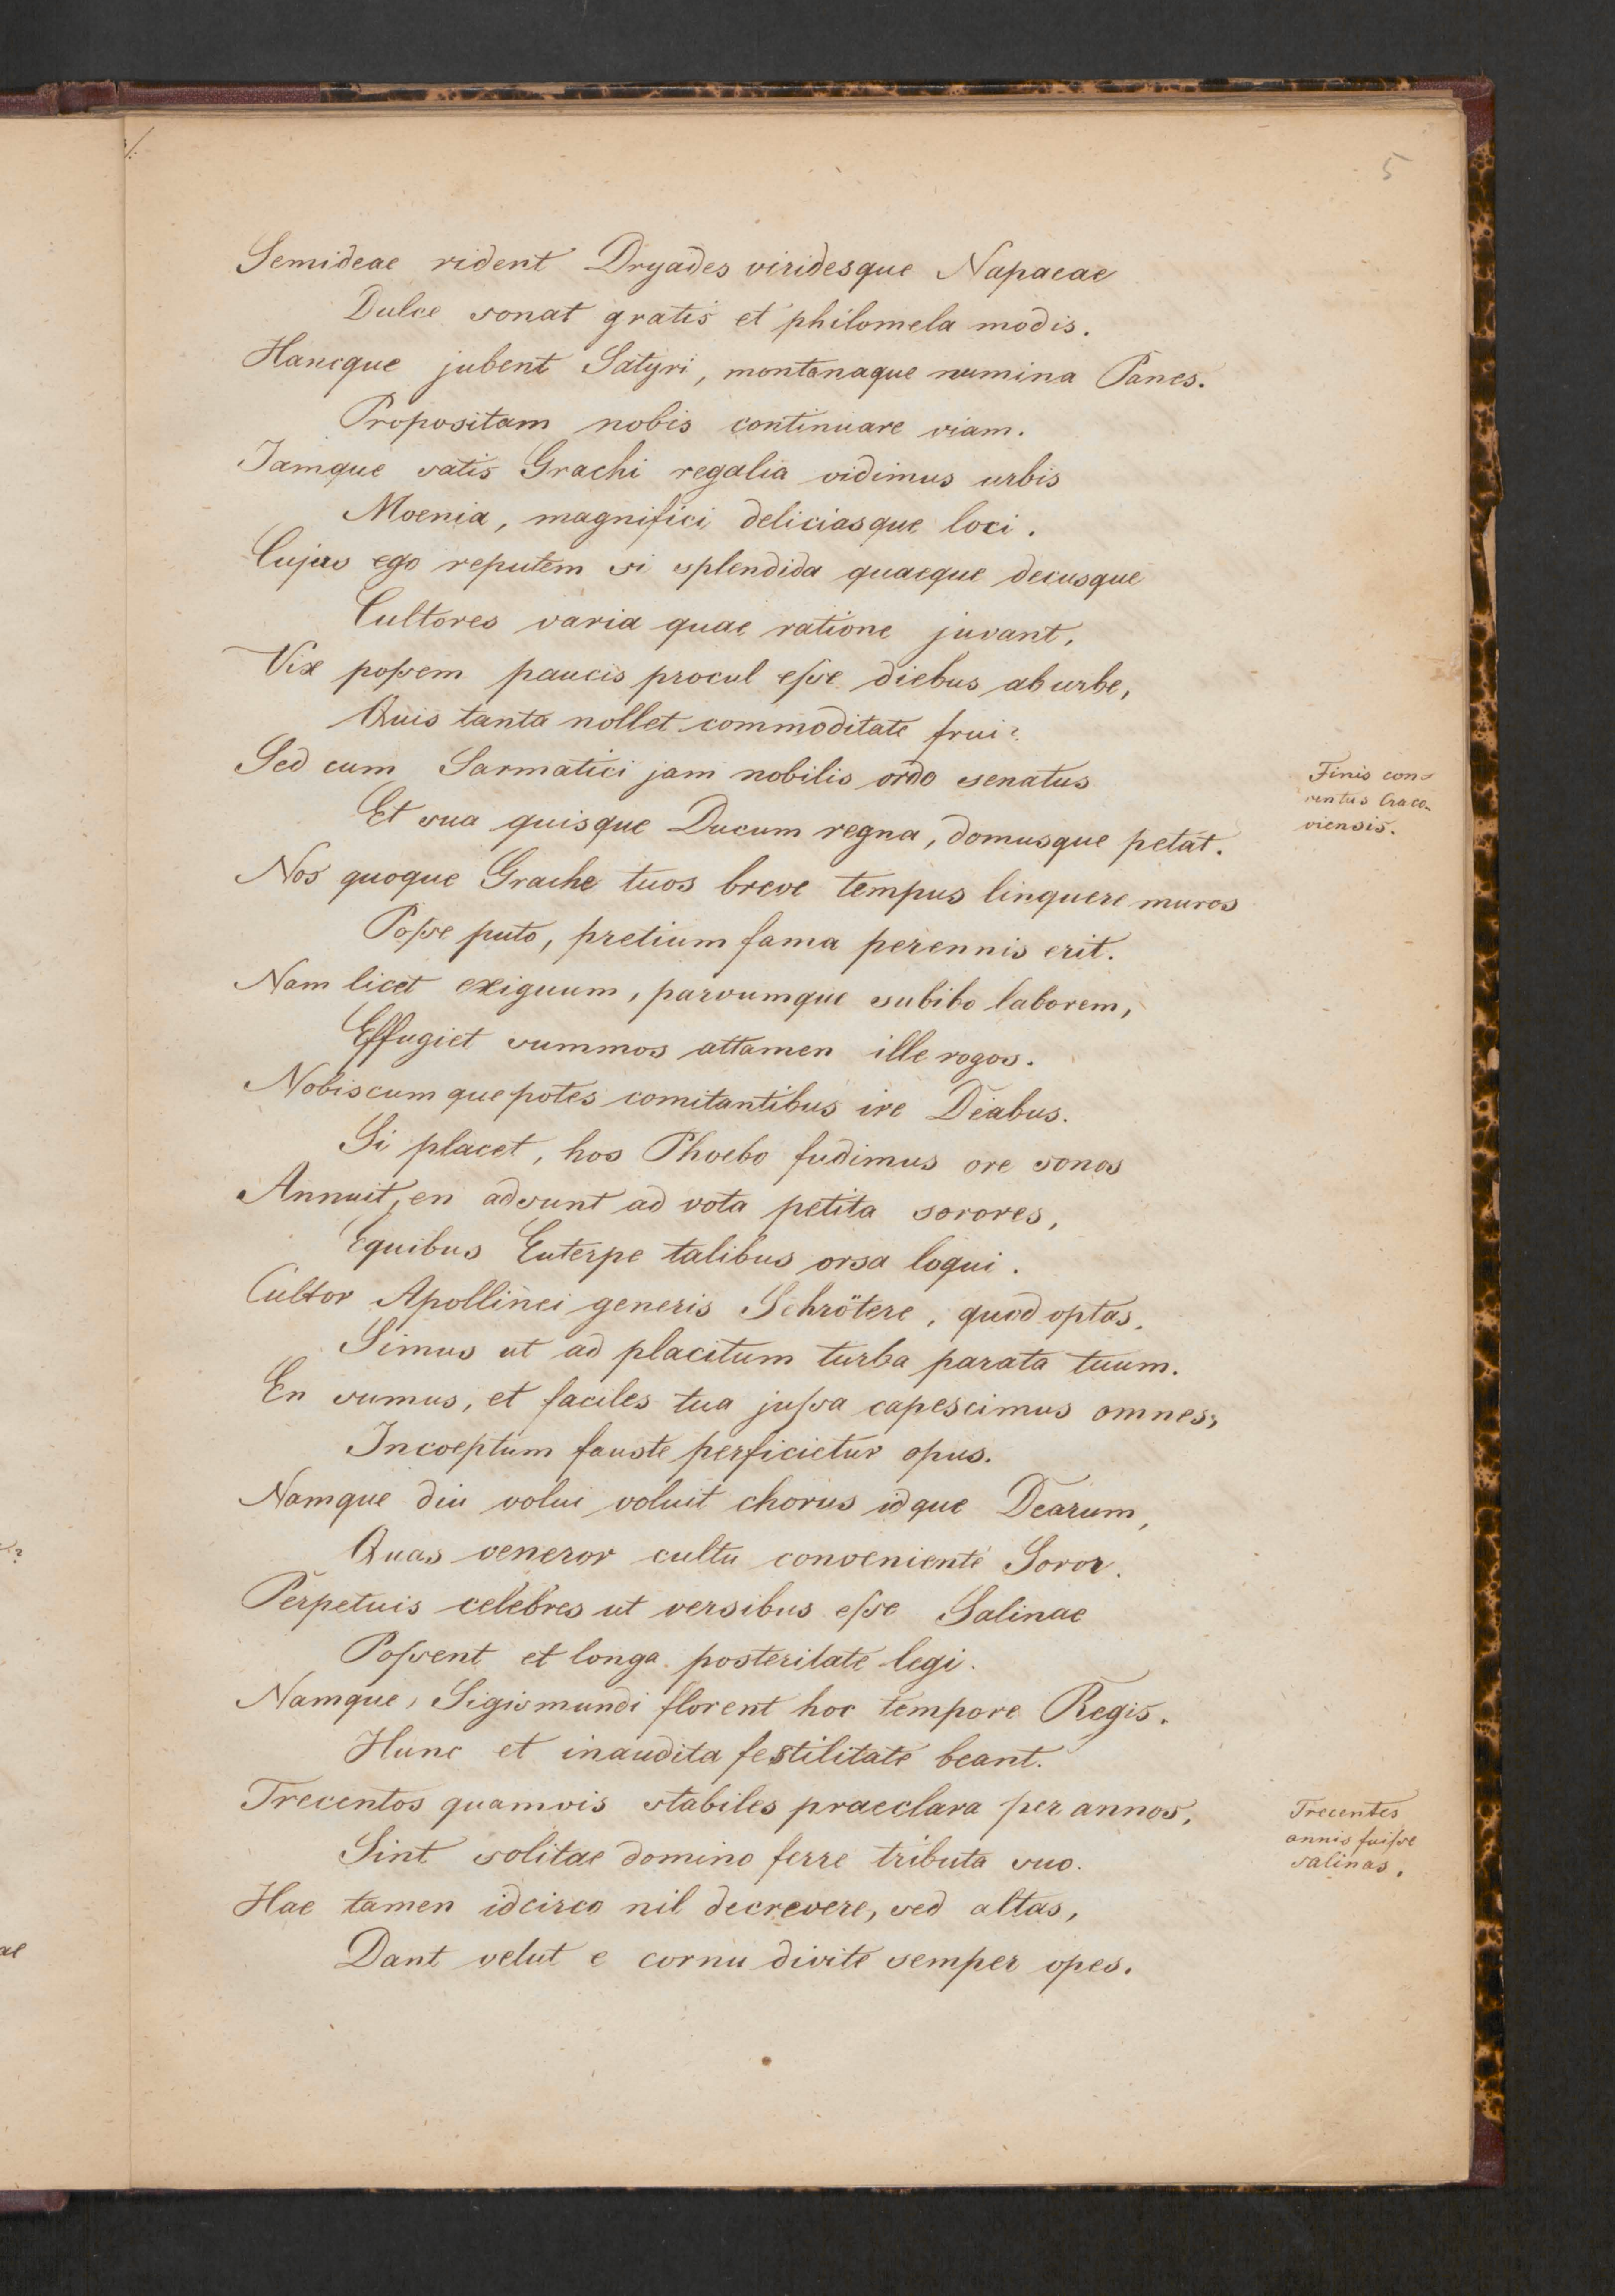 5
Semideae rident Dryades viridesque Napaeae
Dulce sonat gratis et philomela modis.
Hancque jubent Satyri, montanaque numina Panes.
Propositam nobis continuare viam.
Jamque satis Grachi regalia vidimus urbis
Moenia, magnifici deliciasque loci.
Cujus ego reputem si splendida quaeque decusque
Cultores varia quae ratione juvant,
Vix poſsem paucis procul eſse diebus ab urbe,
Quis tanta nollet commoditate frui?
Sed cum Sarmatici jam nobilis ordo senatus
Finis con-
ventus Craco-
viensis.
Et sua quisque Ducum regna, domusque petat.
Nos quoque Grache tuos breve tempus linquere muros
Poſse puto, pretium fama perennis erit.
Nam licet exiguum, parvumque subibo laborem,
Effugiet summos attamen ille rogos.
Nobiscumque potes comitantibus ire Deabus.
Si placet, hos Phoebo fudimus ore sonos
Annuit, en adsunt ad vota petita sorores,
Equibus Euterpe talibus orsa loqui.
Cultor Apollinei generis Schrötere, quod optas,
Simus ut ad placitum turba parata tuum.
En sumus, et faciles tua juſsa capescimus omnes,
Incoeptum fauste perficietur opus.
Namque diu volui voluit chorus idque Dearum,
Quas veneror cultu conveniente Soror.
Perpetuis celebres ut versibus eſse Salinae
Poſsent et longa posteritate legi.
Namque, Sigismundi florent hoc tempore Regis.
Hunc et inaudita festilitate beant.
Trecentos quamvis stabiles praeclara per annos,
Trecentis
annis fuiſse
salinas.
Sint solitae domino ferre tributa suo.
Hae tamen idcirco nil decrevere, sed altas,
Dant velut e cornu divite semper opes.